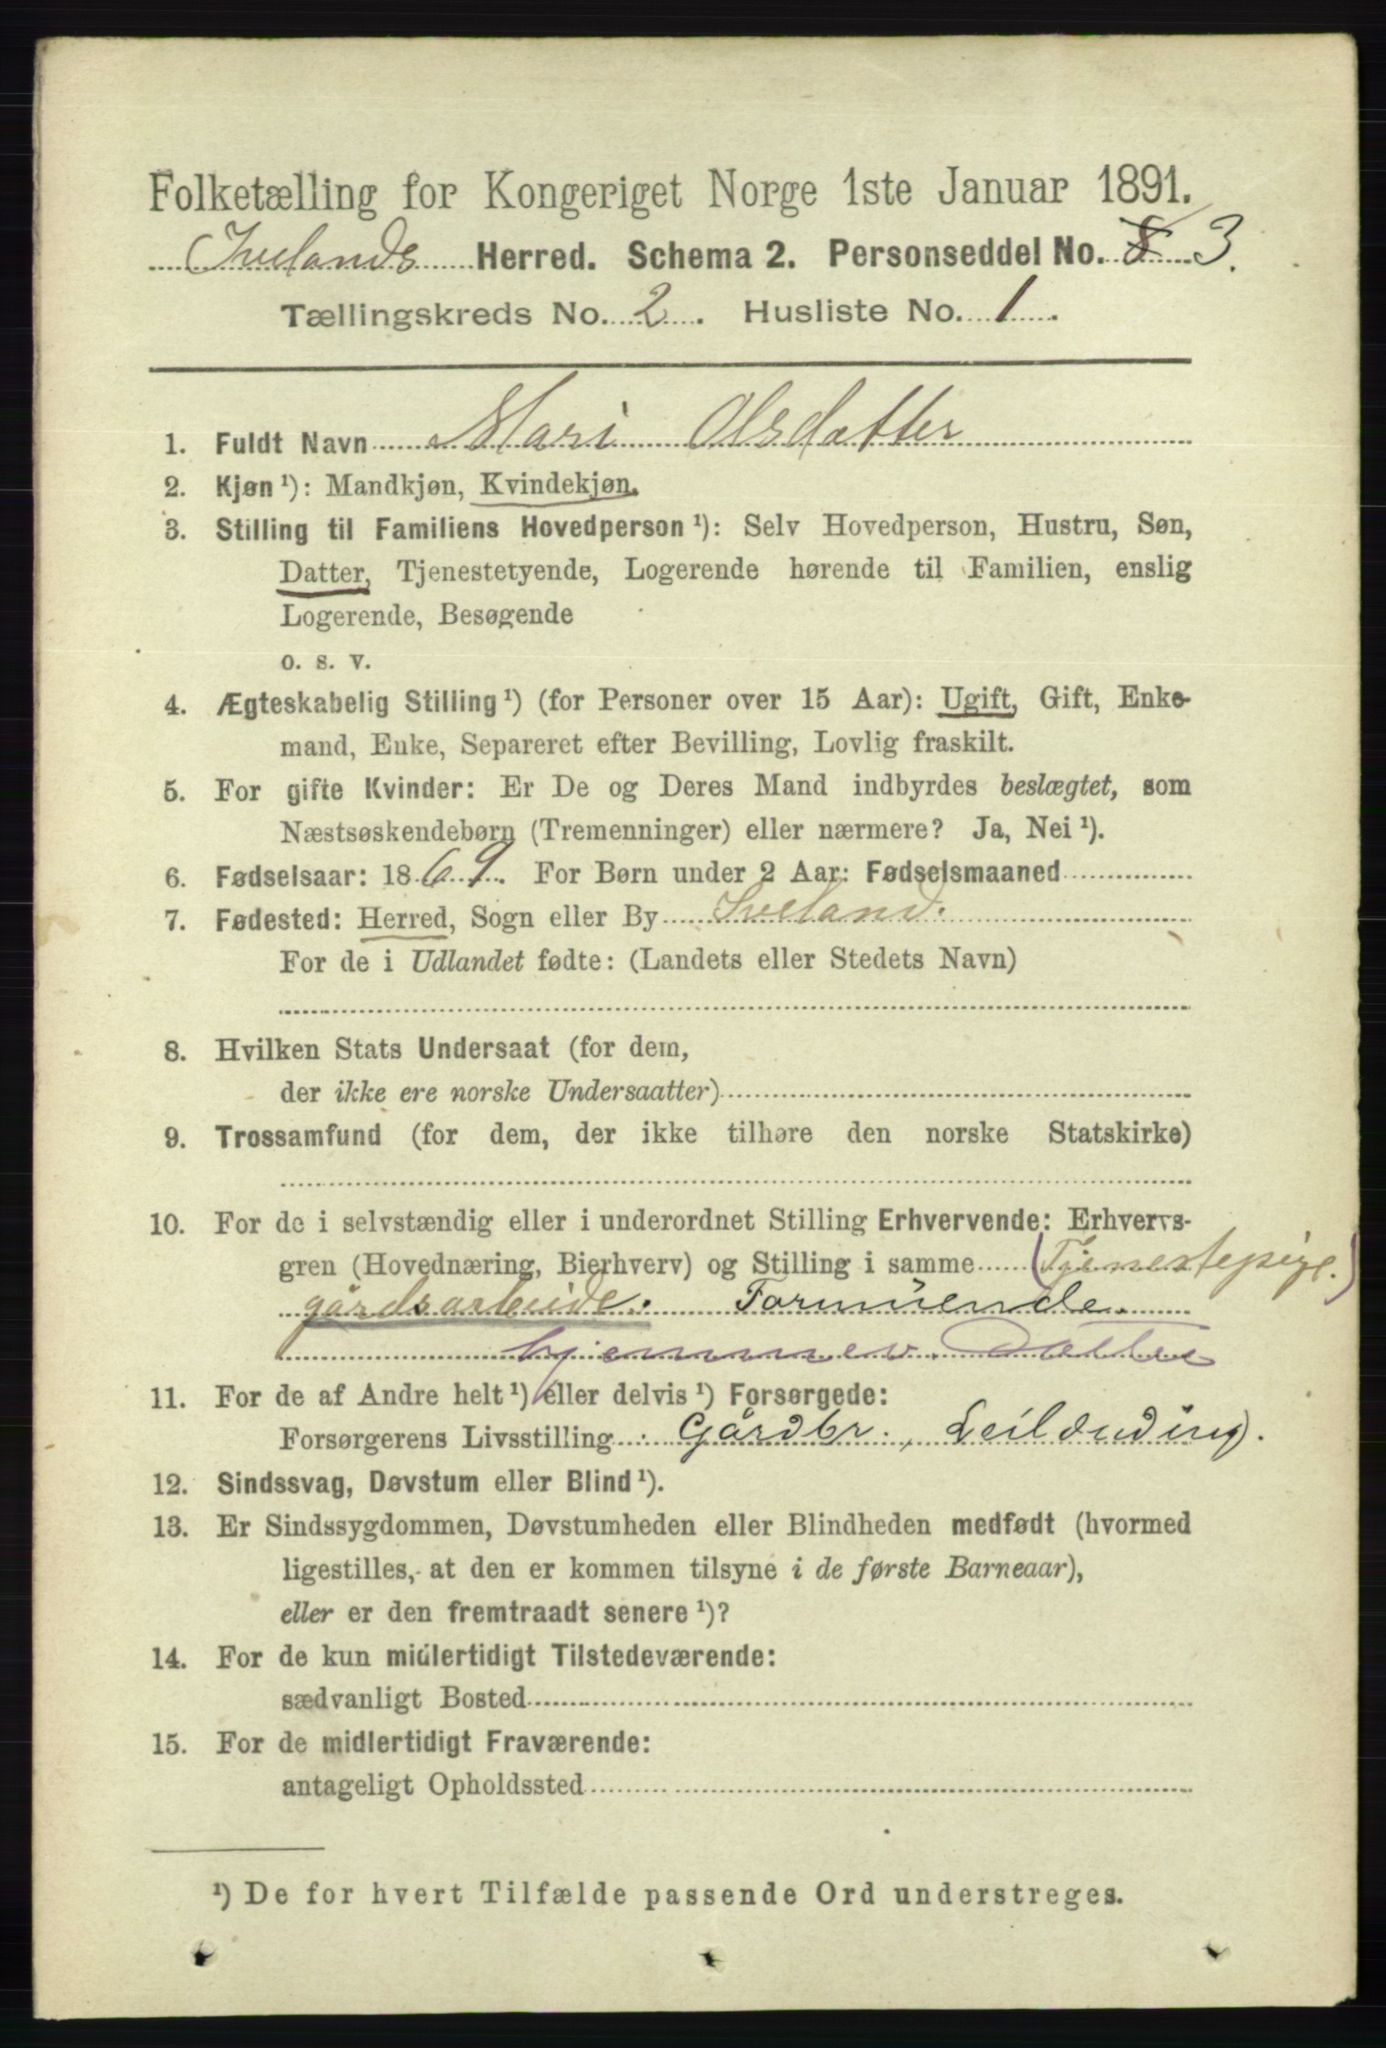 Folketælling for Kongeriget Norge 1ste Januar 1891.
Ivelands Herred. Schema 2. Personseddel No. 8 3.
Tællingskreds No. 2. Husliste No. 1.
1. Fuldt Navn Mari Olsdatter
2. Kjøn¹): Mandkjøn, Kvindekjøn.
3. Stilling til Familiens Hovedperson¹): Selv Hovedperson, Hustru, Søn,
Datter, Tjenestetyende, Logerende hørende til Familien, enslig
Logerende, Besøgende
o. s. v.
4. Ægteskabelig Stilling¹) (for Personer over 15 Aar): Ugift, Gift, Enke-
mand, Enke, Separeret efter Bevilling, Lovlig fraskilt.
5. For gifte Kvinder: Er De og Deres Mand indbyrdes beslægtet, som
Næstsøskendebørn (Tremenninger) eller nærmere? Ja, Nei¹).
6. Fødselsaar: 1869. For Børn under 2 Aar: Fødselsmaaned
7. Fødested: Herred, Sogn eller By Iveland.
For de i Udlandet fødte: (Landets eller Stedets Navn)
8. Hvilken Stats Undersaat (for dem,
der ikke ere norske Undersaatter)
9. Trossamfund (for dem, der ikke tilhøre den norske Statskirke)
10. For de i selvstændig eller i underordnet Stilling Erhvervende: Erhvervs-
gren (Hovednæring, Bierhverv) og Stilling i samme (Tjenestepige.)
gårdsarbeide. Formuende.
hjemmev. Datter
11. For de af Andre helt¹) eller delvis¹) Forsørgede:
Forsørgerens Livsstilling Gårdbr., Leilænding.
12. Sindssvag, Døvstum eller Blind¹).
13. Er Sindssygdommen, Døvstumheden eller Blindheden medfødt (hvormed
ligestilles, at den er kommen tilsyne i de første Barneaar),
eller er den fremtraadt senere¹)?
14. For de kun midlertidigt Tilstedeværende:
sædvanligt Bosted
15. For de midlertidigt Fraværende:
antageligt Opholdssted
¹) De for hvert Tilfælde passende Ord understreges.